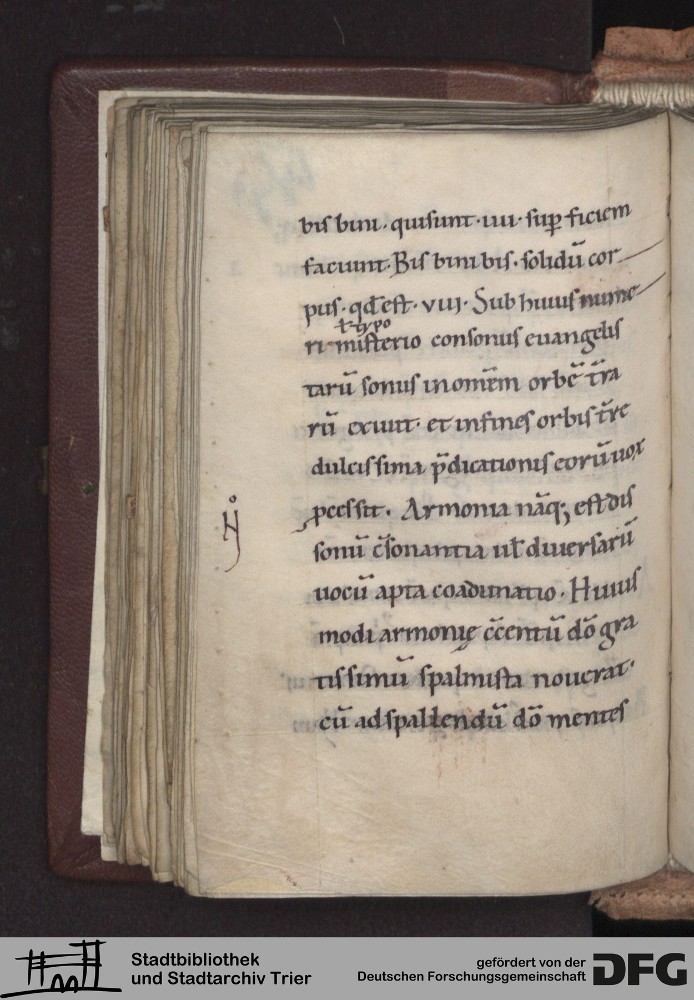 bis bini · qui sunt · iiii · sup̄ficiem
faciunt · Bis bini bis · solidū cor
pus · qđ est · viij · Sub huius nume
ł typo
ri misterio consonus euangelis
tarū sonus in om̄em orbē t̄ra
rū exiuit · et in fines orbis t̄re
dulcissima p̄dicationis eorū uox
ꝓcessit · Armonia nāq; est dis
sonū c̄sonantia uł diuersarū
uocū apta coadunatio · Huius
modi armonię c̄centū dō gra
tissimū spalmista nouerat ·
cū ad spallendū dō mentes
Stadtbibliothek
und Stadtarchiv Trier
gefördert von der
Deutschen Forschungsgemeinschaft
DFG